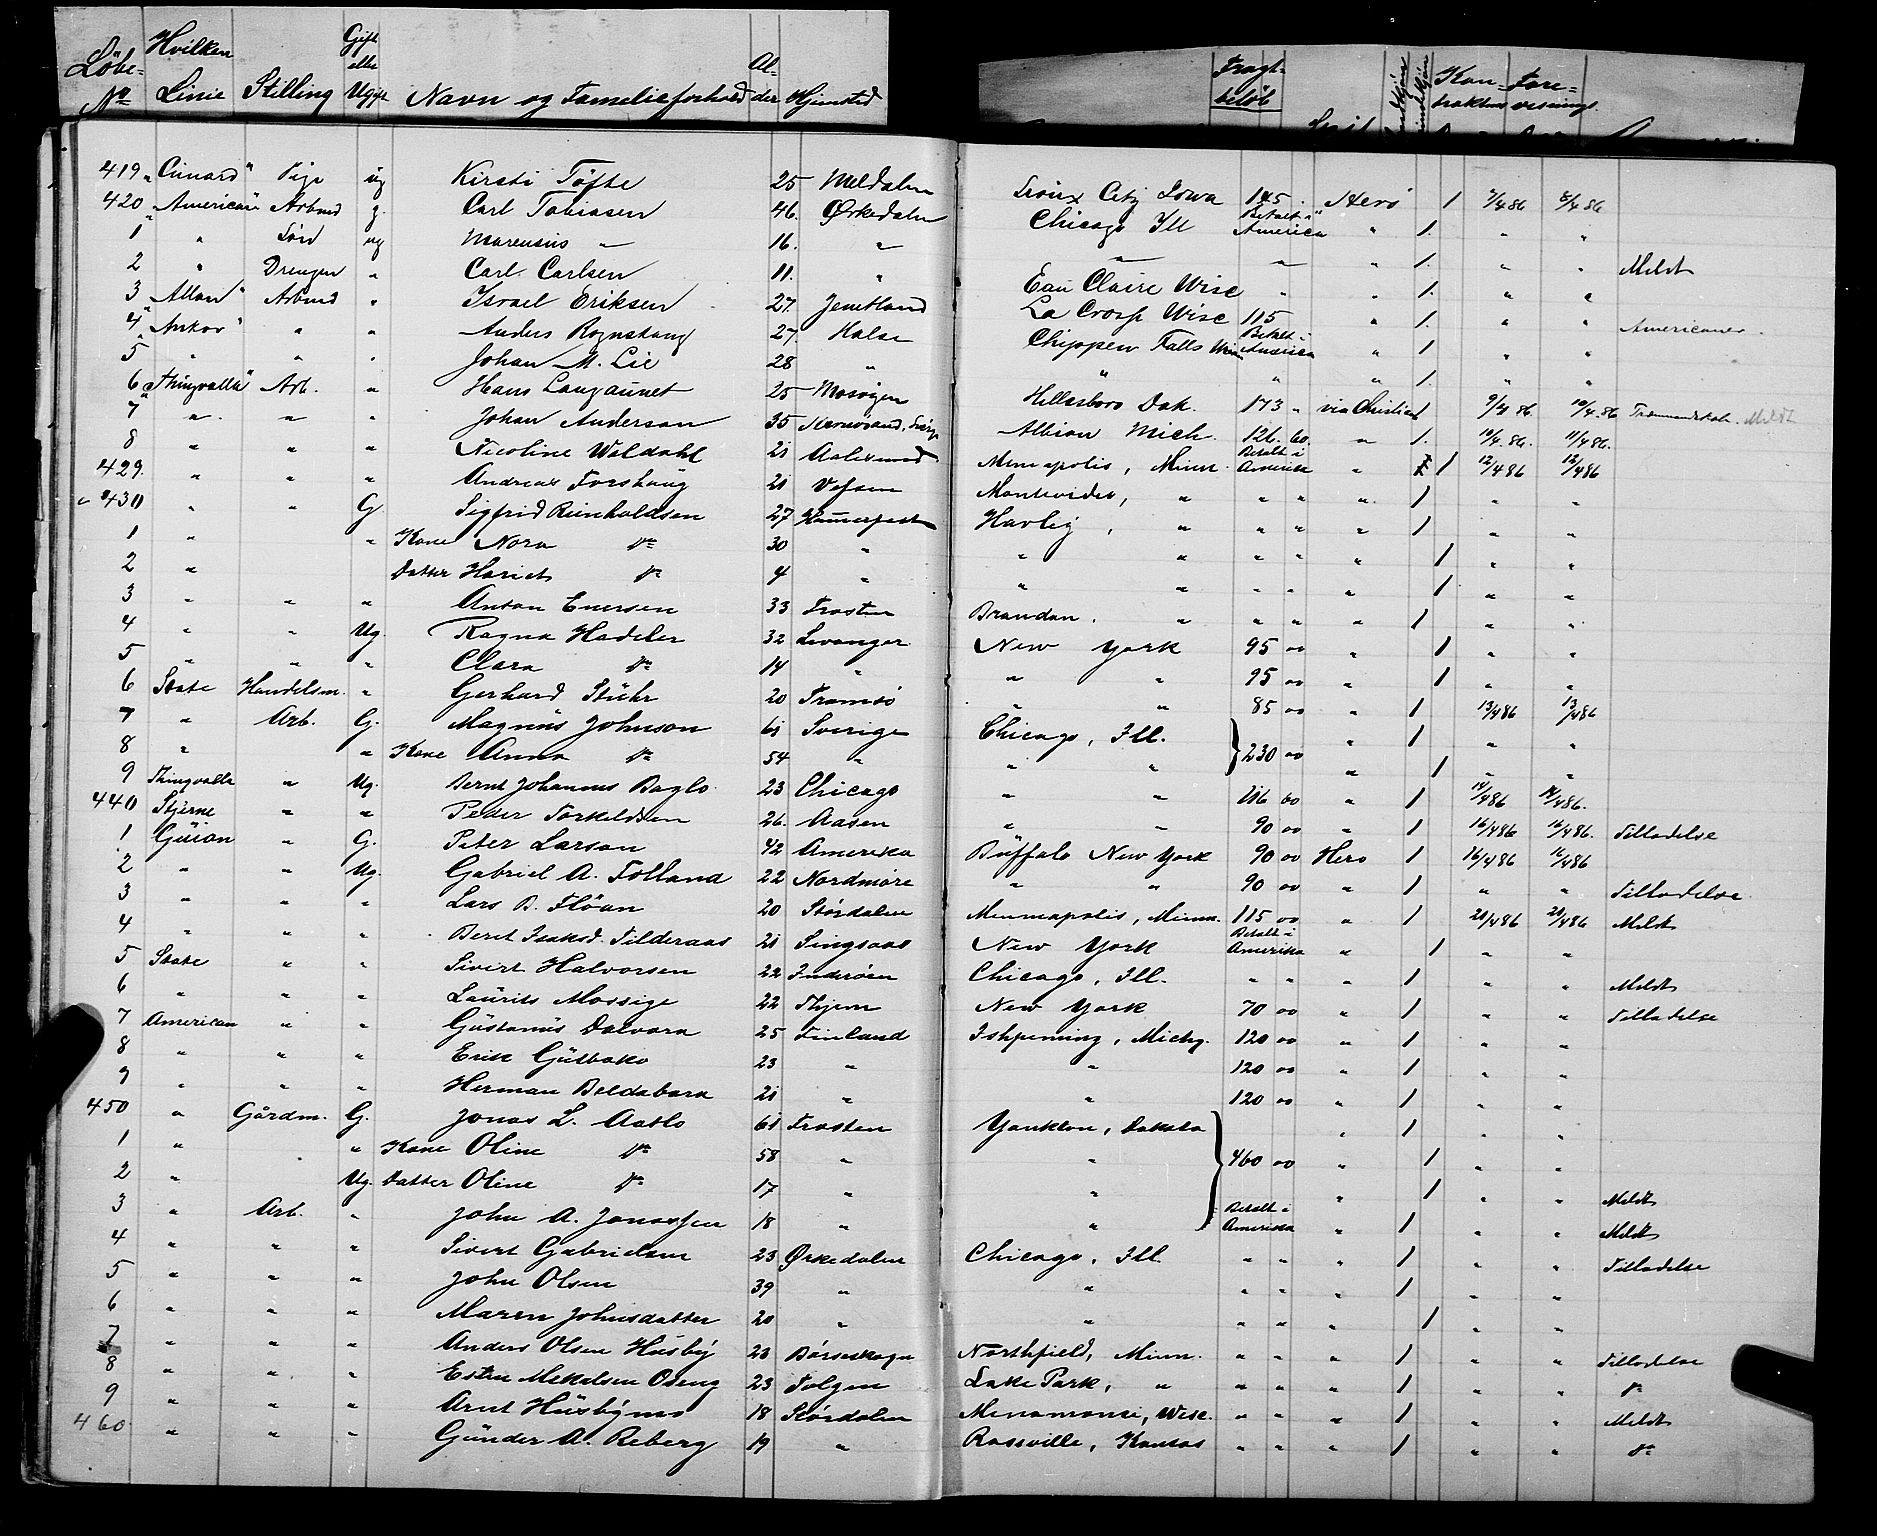 Löbe- No Hvilken Linie Stilling Gift eller Ugift Navn og Familieforhold Al- der Hjemsted Fragt- beløb Kon- traktens Fore- visnings
419 " Cunard " Pige ug Kirsti Töfte 25 Meldalen Sioux City Iowa 145 . Hero 1 7/4 86 8/4 86
420 " American " Arbmd g. Carl Tobiasen 46. Ørkedalen Chicago Ill Betalt i America " 1. " "
1 " Sön ug Marensius " 16. " " " " 1. " " Meldt
2 " Drengen " Carl Carlsen 11. " Eau Claire Wisc " " 1. " "
3 " Allan " Arbmd " Israel Eriksen 27. Jemtland La Cross Wisc 115 " 1. " " Americaner
4 " Ankor " " " Anders Rognskaug 27 Halse Chippew Falls Betalt i America " 1 " "
5 " " " Johan M. Lie 28 " " " " 1. " "
6 " Thingvalla " Arb. " Hans Langaunet 25 Mosøyen Hillsboro Dak. 173 " via Christian 1 9/4 86 10/4 86 Meldt
7 " " " Johan Anderson 35 Albion Mich. 126. 60. " 1. 10/4 86. 11/4 86.
8 " " " Nicoline Waldahl 21 Aalesund Mineapolis, Minn. Betalt i Amerika " 1 12/4 86 12/4 86
429. " " " Andreas Forshaug 21 Vefsen Montevideo, " " " " 1 " "
430 " " G Sigfrid Reinholdsen 27 Hamerfest " " " " 1 " "
1 " " Kone Nora do 30 " " " " " " 1 " "
2 " Datter Hariet do 4 " " " " " " 1 " "
3 " " " Anton Enersen 33 Frosten Brandon. " " " " 1 " "
4 " " Ug. Ragna Hadeler 32 Levanger New York 95 00 " 1 " "
5 " " " Clara do 14 " " " 95 00 " 1 " "
6 State Handelsm. " Gerhard Stühr 20 Tromsö " " 85 00 " 1 13/4 86 13/4 86
7 " Arb. G. Magnus Johnson 61 Sverige Chicago, Ill. } 230 00 " 1 " "
8 " " Kone Anna do 54 " " " " 1 " "
9 Thingvalla " Ug. Bernt Johannes Baglo 23 Chicago " " 116 60 " 1 14/4 86 14/4 86.
440 Stjerne " " Peder Torkeldsen 26. Aasen " " 90 00 " 1 16/4 86 16/4 86. Tilladelse
1 Guion " G. Peter Larson 42 Amerika Buffalo New York 90 00 Hero 1 16/4 86 16/4 86
2 " " Ug. Gabriel A. Folland 22 Nordmöre " " 90 00 " 1 " " Tilladelse
3 " " " Lars B. Flöan 20 Stördalen Minneapolis, Minn. 115 00 " 1 20/4 86 20/4 86 Meldt
4 " " " Beret Isaksd. Tilderaas 21 Singsaas New York Betalt i Amerika " 1 " "
5 State " " Sivert Halvorsen 22 Inderöen Chicago, Ill. " " " 1 " " Meldt
6 " " " Laurits Mossige 22 Thjem New York 70 00 " 1 " " Tilladelse
7 American " " Gustanus Dalvara 25 Finland Ishpeming, Michg. 120 00 " 1 " "
8 " " " Erik Gutbako 23 " " 120 00 " 1 " "
9 " " " Herman Beldabara 21 " " 120 00 " 1 " "
450 " Gårdm. G. Jonas L. Aatlo 61 Frosten Yankton, Dakota } " 1 " "
1 " " Kone Oline do 58 " " 460 00 " 1 " "
2 " Ug. Datter Oline do 17 " " " 1 " " Meldt
3 " Arb. " John A. Jonassen 18 " " Betalt i Amerika " 1 " " Meldt
4 " " " Sivert Gabrielsen 23 Ørkedalen Chicago, Ill. " " " 1 " " Tilladelse
5 " " " John Olsen 39 " " " " " 1 " "
6 " " " Maren Johnsdatter 20 " " " " " 1 " "
7 " " " Anders Olsen Husby 23 Börseskogn Northfield, Minn. " " " 1 " " Tilladelse
8 " " " Esten Mekalsen Oseng 23 Tolgen Lake Park, " " " " 1 " " do
9 " " " Arnt Husbymo 18 Stördalen Menomonei, Wisc. " " " 1 " " Meldt
460 " " " Gunder A. Reberg 19 " Rossville, Kansas " " " 1 " " do